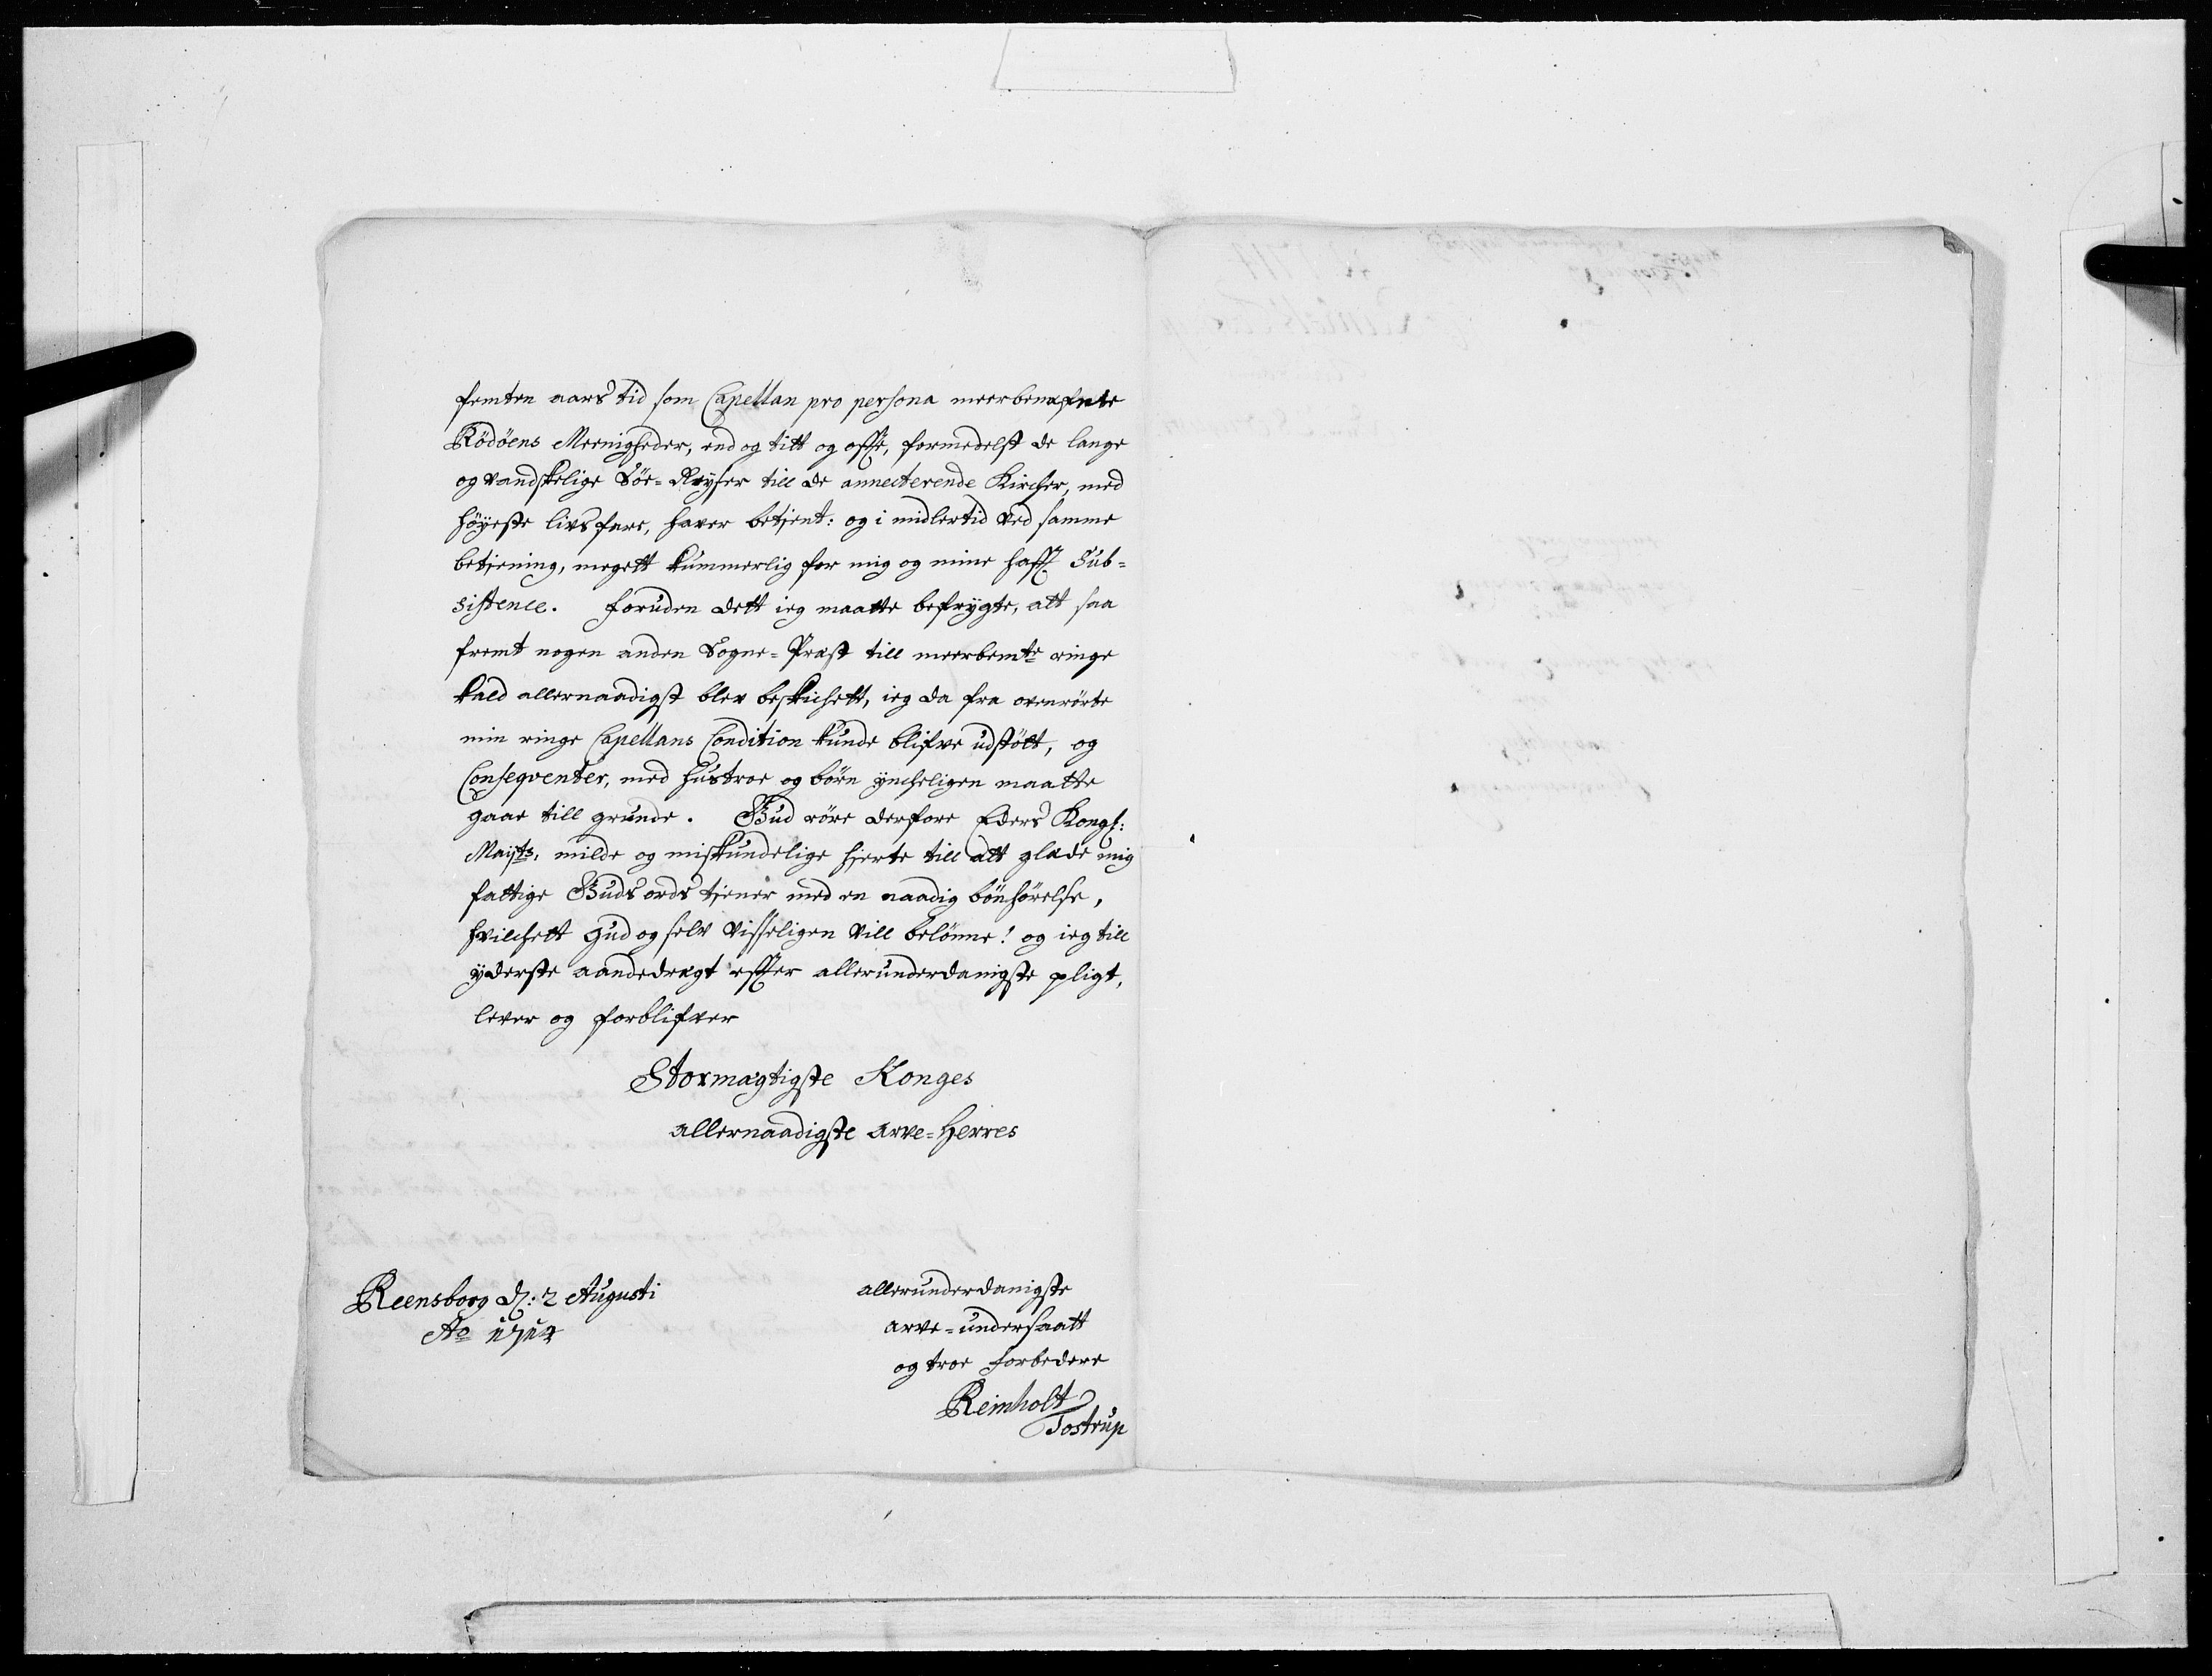 femten aars tid som Capellan pro persona meerbenefnte
Rödöens Meenigheder, end og titt og offte, formedelst de lange
og vandskelige Söe-Reyser till de annecterende Kircher, med
höyeste livs fare, haver betient: og i midlertid ved samme
betiening, megett kummerlig for mig og mine hafft Sub-
sistence. foruden dett ieg maatte befrygte, att saa
fremt nogen anden Sogne-Præst till meerbemte ringe
kald allernaadigst blev beskichett, ieg da fra ovenrörte
min ringe Capellans Condition kunde blifve udstött, og
Conseqventer, med hustroe og börn yncheligen maatte
gaae till grunde. Gud röre derfore Eders Kongl:
Mayts, milde og miskundelige hierte till att glæde mig
fattige Guds ords tiener med en naadig bönhörelse,
hvilchett Gud og selv visseligen vill belönne! og ieg till
yderste aandedragt effter allerunderdanigste pligt,
lever og forblifver
Stormægtigste Konges
allernaadigste arve-Herres
Reensborg d: 2 Augusti
Ao 1714
allerunderdanigste
arve-undersaatt
og troe forbedere
Reinholt
Tostrup